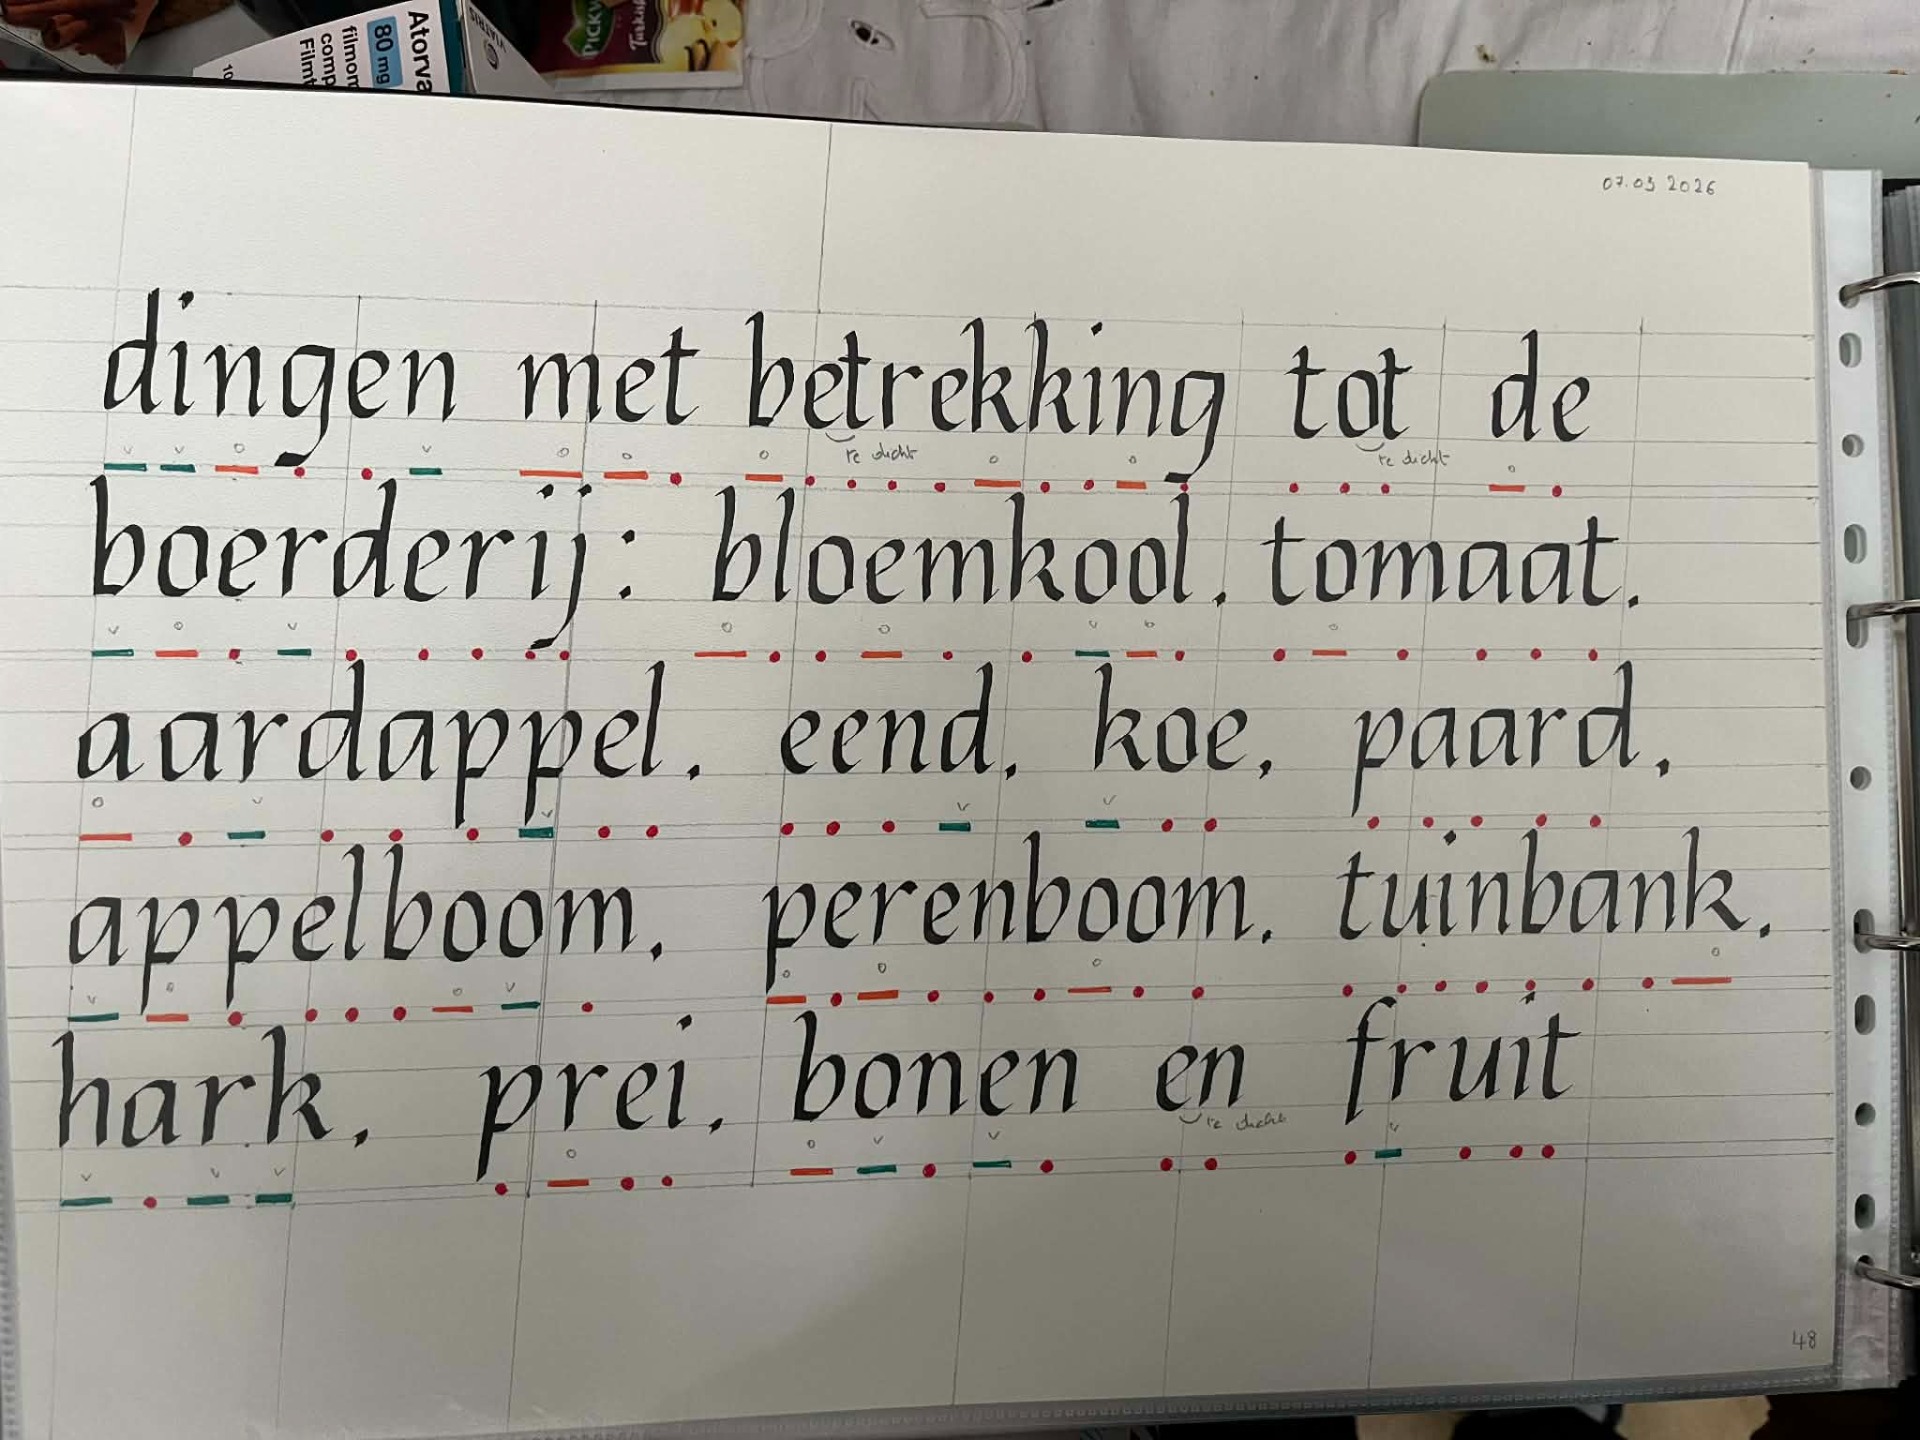 Atorva
80 mg
filmom
comp
Filmt
10
VIATRIS
PICKW
Turkish
07.03 2026
dingen met betrekking tot de
te dicht te dicht
boerderij: bloemkool, tomaat,
aardappel, eend, koe, paard,
appelboom, perenboom, tuinbank,
hark, prei, bonen en fruit
te dicht
48